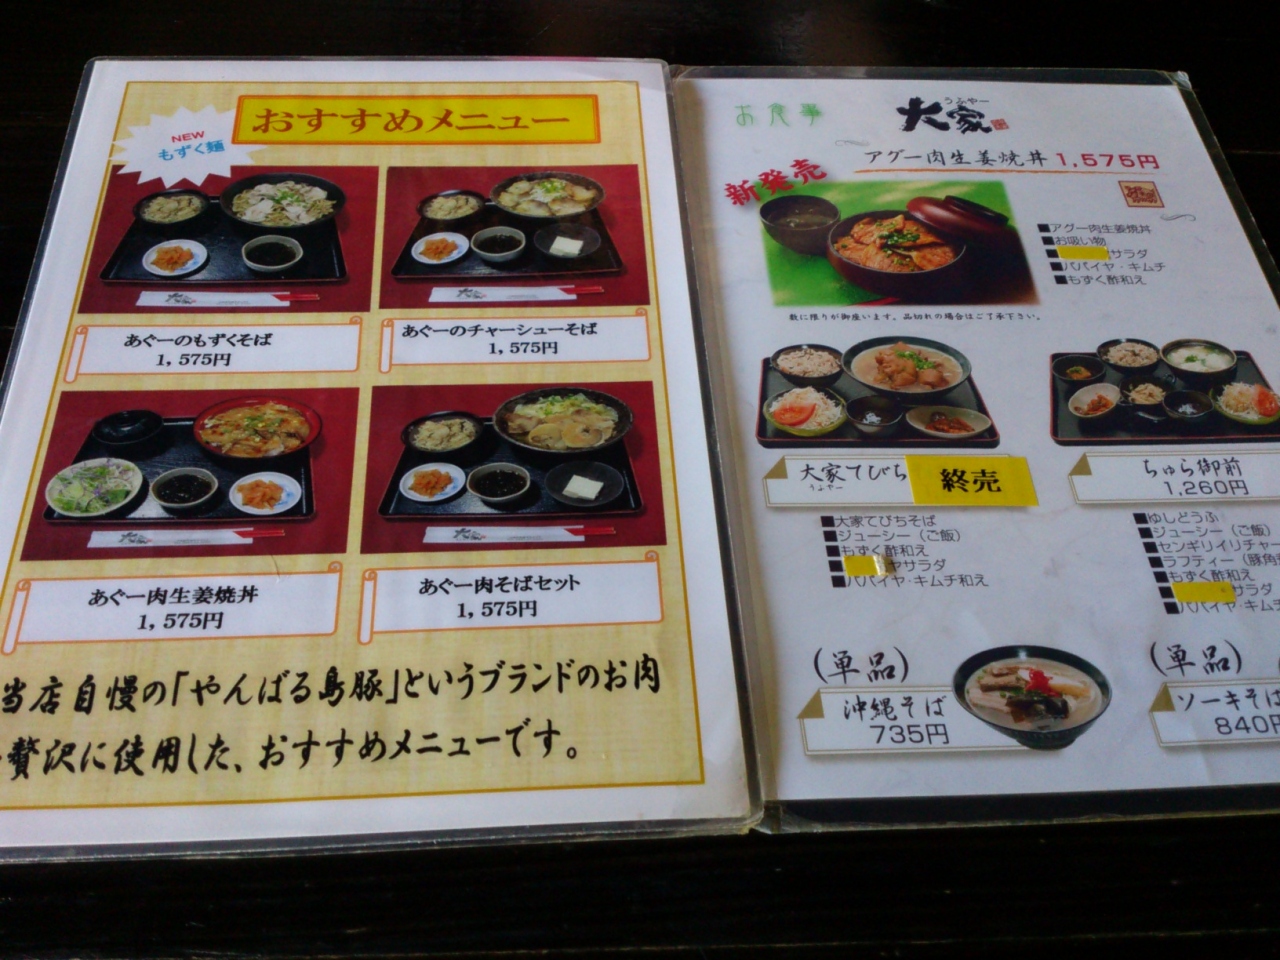 おすすめメニュー
NEW
もずく麺
あぐーのもずくそば
1,575円
あぐーのチャーシューそば
1,575円
あぐー肉生姜焼丼
1,575円
あぐー肉そばセット
1,575円
当店自慢の「やんばる島豚」というブランドのお肉
贅沢に使用した、おすすめメニューです。
お食事
うふやー
大家
アグー肉生姜焼丼 1,575円
新発売
■アグー肉生姜焼丼
■お吸い物
■サラダ
■パパイヤ・キムチ
■もずく酢和え
数に限りが御座います。品切れの場合はご了承下さい。
大家てびち
うふやー
終売
■大家てびちそば
■ジューシー(ご飯)
■もずく酢和え
■ヤサラダ
■パパイヤ・キムチ和え
ちゅら御前
1,260円
■ゆしどうふ
■ジューシー(ご飯)
■センギリイリチャー
■ラフティー(豚角
■もずく酢和え
■サラダ
■パパイヤ・キムチ
(単品)
沖縄そば
735円
(単品)
ソーキそば
840円